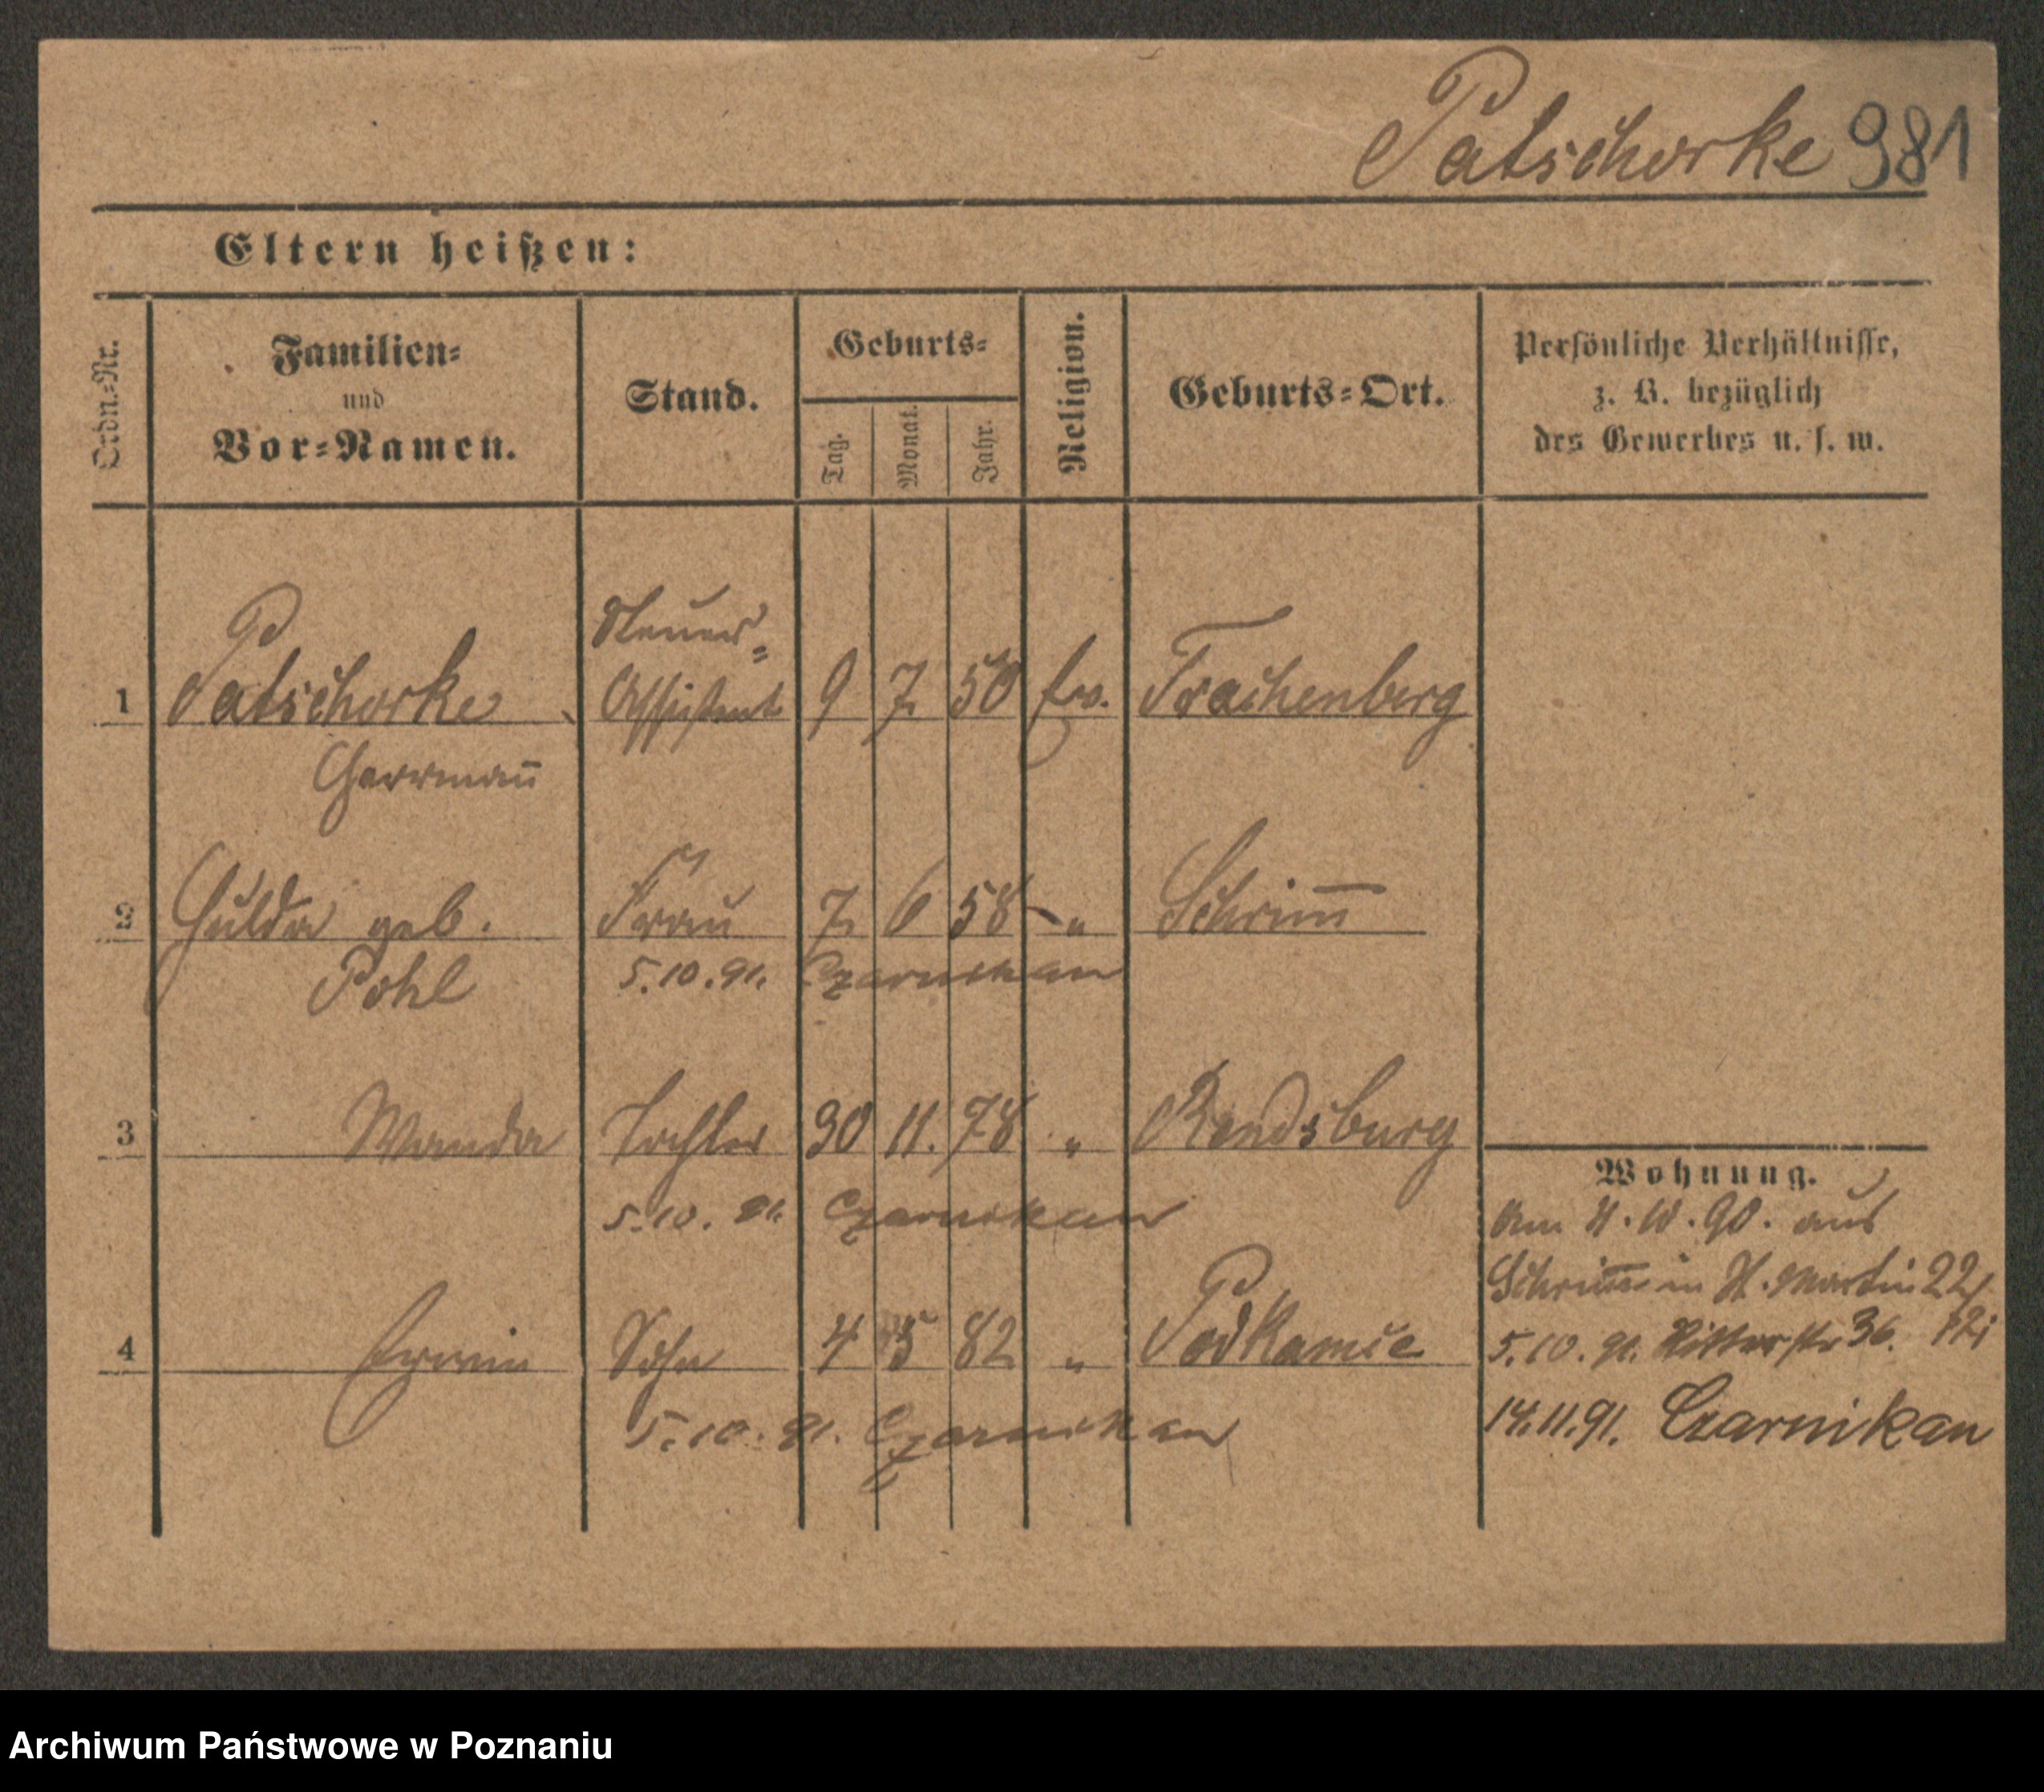 Patschorke 981
Eltern heißen:
Ordn.=Nr.
Familien=
und
Vor=Namen.
Stand.
Geburts=
Tag.
Monat.
Jahr.
Religion.
Geburts=Ort.
Persönliche Verhältnisse,
z. B. bezüglich
des Gewerbes u. s. w.
Steuer=
1 Patschorke Assistent 9 7. 50 ev. Trachenberg
Herrmañ
2 Hulda geb. Frau 7. 6 58 " Schrim̄
Pohl 5.10.91. Czarnikau
3 Wanda Tochter 30 11. 78 " Rendsburg
5.10.91. Czarnikau
4 Erwin Sohn 4 5 82 " Podkamče
5.10.91. Czarnikau
Wohnung.
Am 4.10.90. aus
Schrim̄ in St. Martin 22/
5.10.91. Ritterstr 36.
14.11.91. Czarnikau
Archiwum Państwowe w Poznaniu